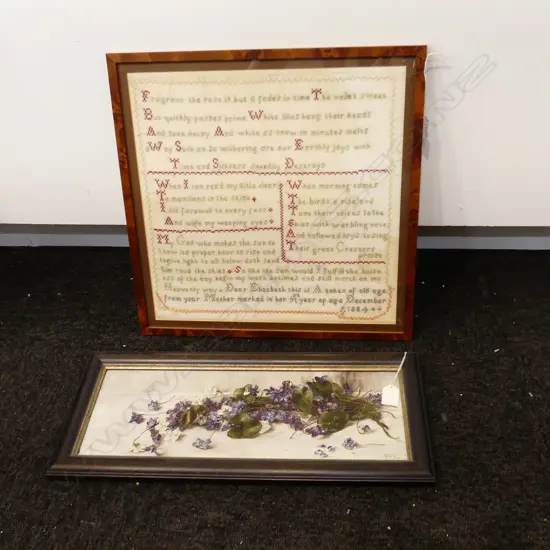 Fragrant the rose is but it fades in time The violet sweet
But quickly pastes prime White lilies hang their heads
And soon decay And white as snow in minutes melts
away Such an So withering are our Earthly joys with
Time and Sickness Speedily Destroys
When I can read my title clear
To mansions in the skies
I bid farewell to every fear
And wipe my weeping eyes
When morning comes
The birds a rise and
Tune their voices to the
Skies with warbling notes
And hallowed joys to sing
Their great Creators
praise
My God who makes the sun to
know his proper hour to rise and
to give light to all below doth send
him round the skies So like the sun would I fulfill the busin
ess of the day begin my work betimes and still march on my
Heavenly way Dear Elizabeth this is A queen of old age
from your Mother marked in her year of age December
1884